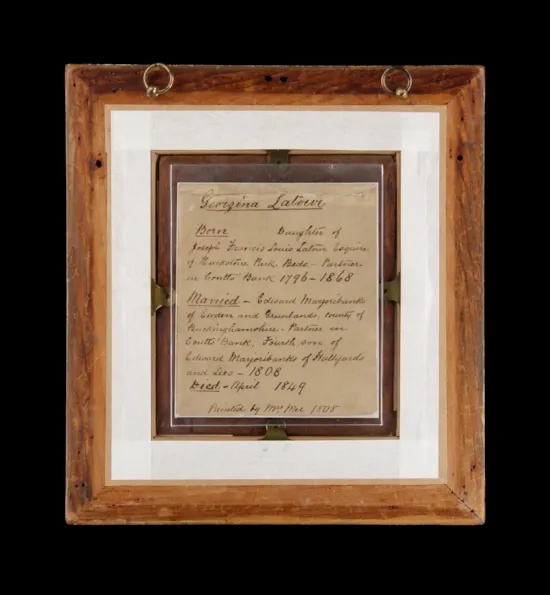 Georgina Latour
Born Daughter of
Joseph Francis Louis Latour Esquire
of Park, Beds - Partner
in Coutts' Bank 1796 - 1868
Married - Edward Marjoribanks
of and Greenlands, county of
Buckinghamshire - Partner in
Coutts' Bank, Fourth son of
Edward Marjoribanks of Hallyards
and Lees - 1808
Died - April 1849
Painted by Mrs Mee 1808